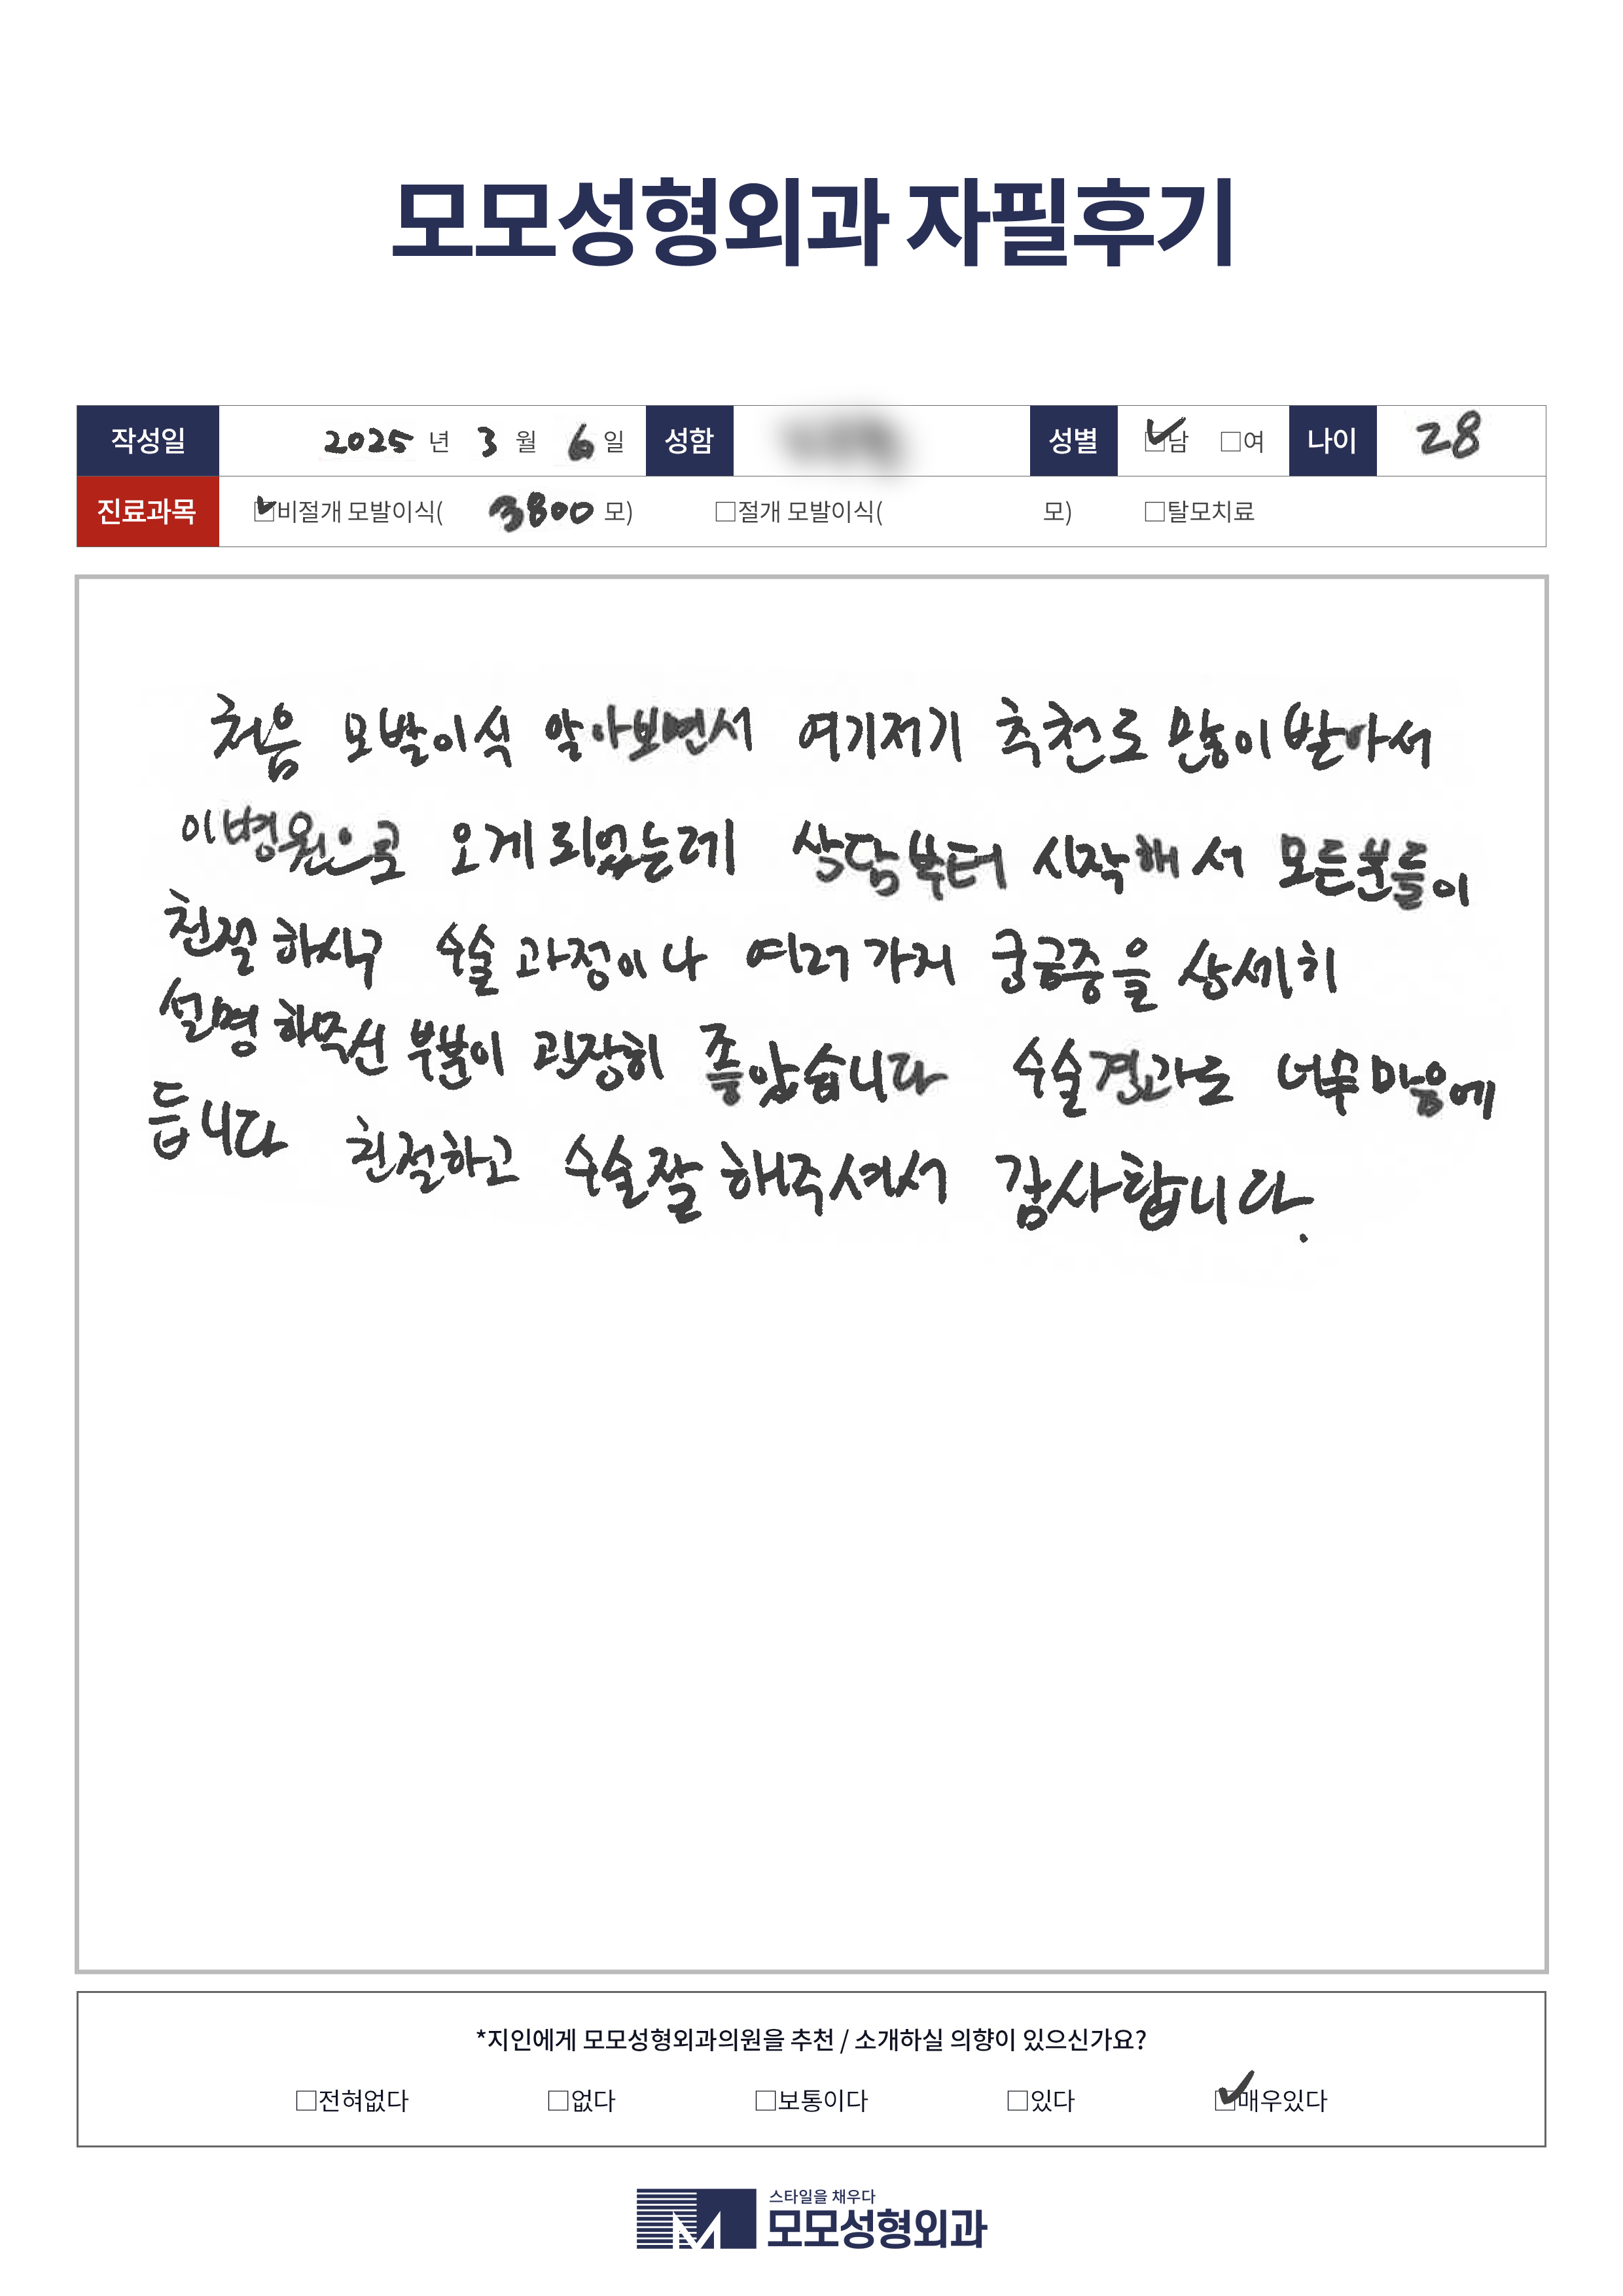 모모성형외과 자필후기
작성일 2025 년 3 월 6 일 성함 성별 ☑남 □여 나이 28
진료과목 ☑비절개 모발이식( 3800 모) □절개 모발이식( 모) □탈모치료
처음 모발이식 알아보면서 여기저기 추천도 많이 받아서
이병원으로 오게 되었는데 상담부터 시작해서 모든분들이
친절하시구 수술과정이나 여러가지 궁금증을 상세히
설명해주신 부분이 굉장히 좋았습니다 수술결과도 너무마음에
듭니다 친절하고 수술잘 해주셔서 감사합니다.
*지인에게 모모성형외과의원을 추천 / 소개하실 의향이 있으신가요?
□전혀없다 □없다 □보통이다 □있다 ☑매우있다
스타일을 채우다
모모성형외과